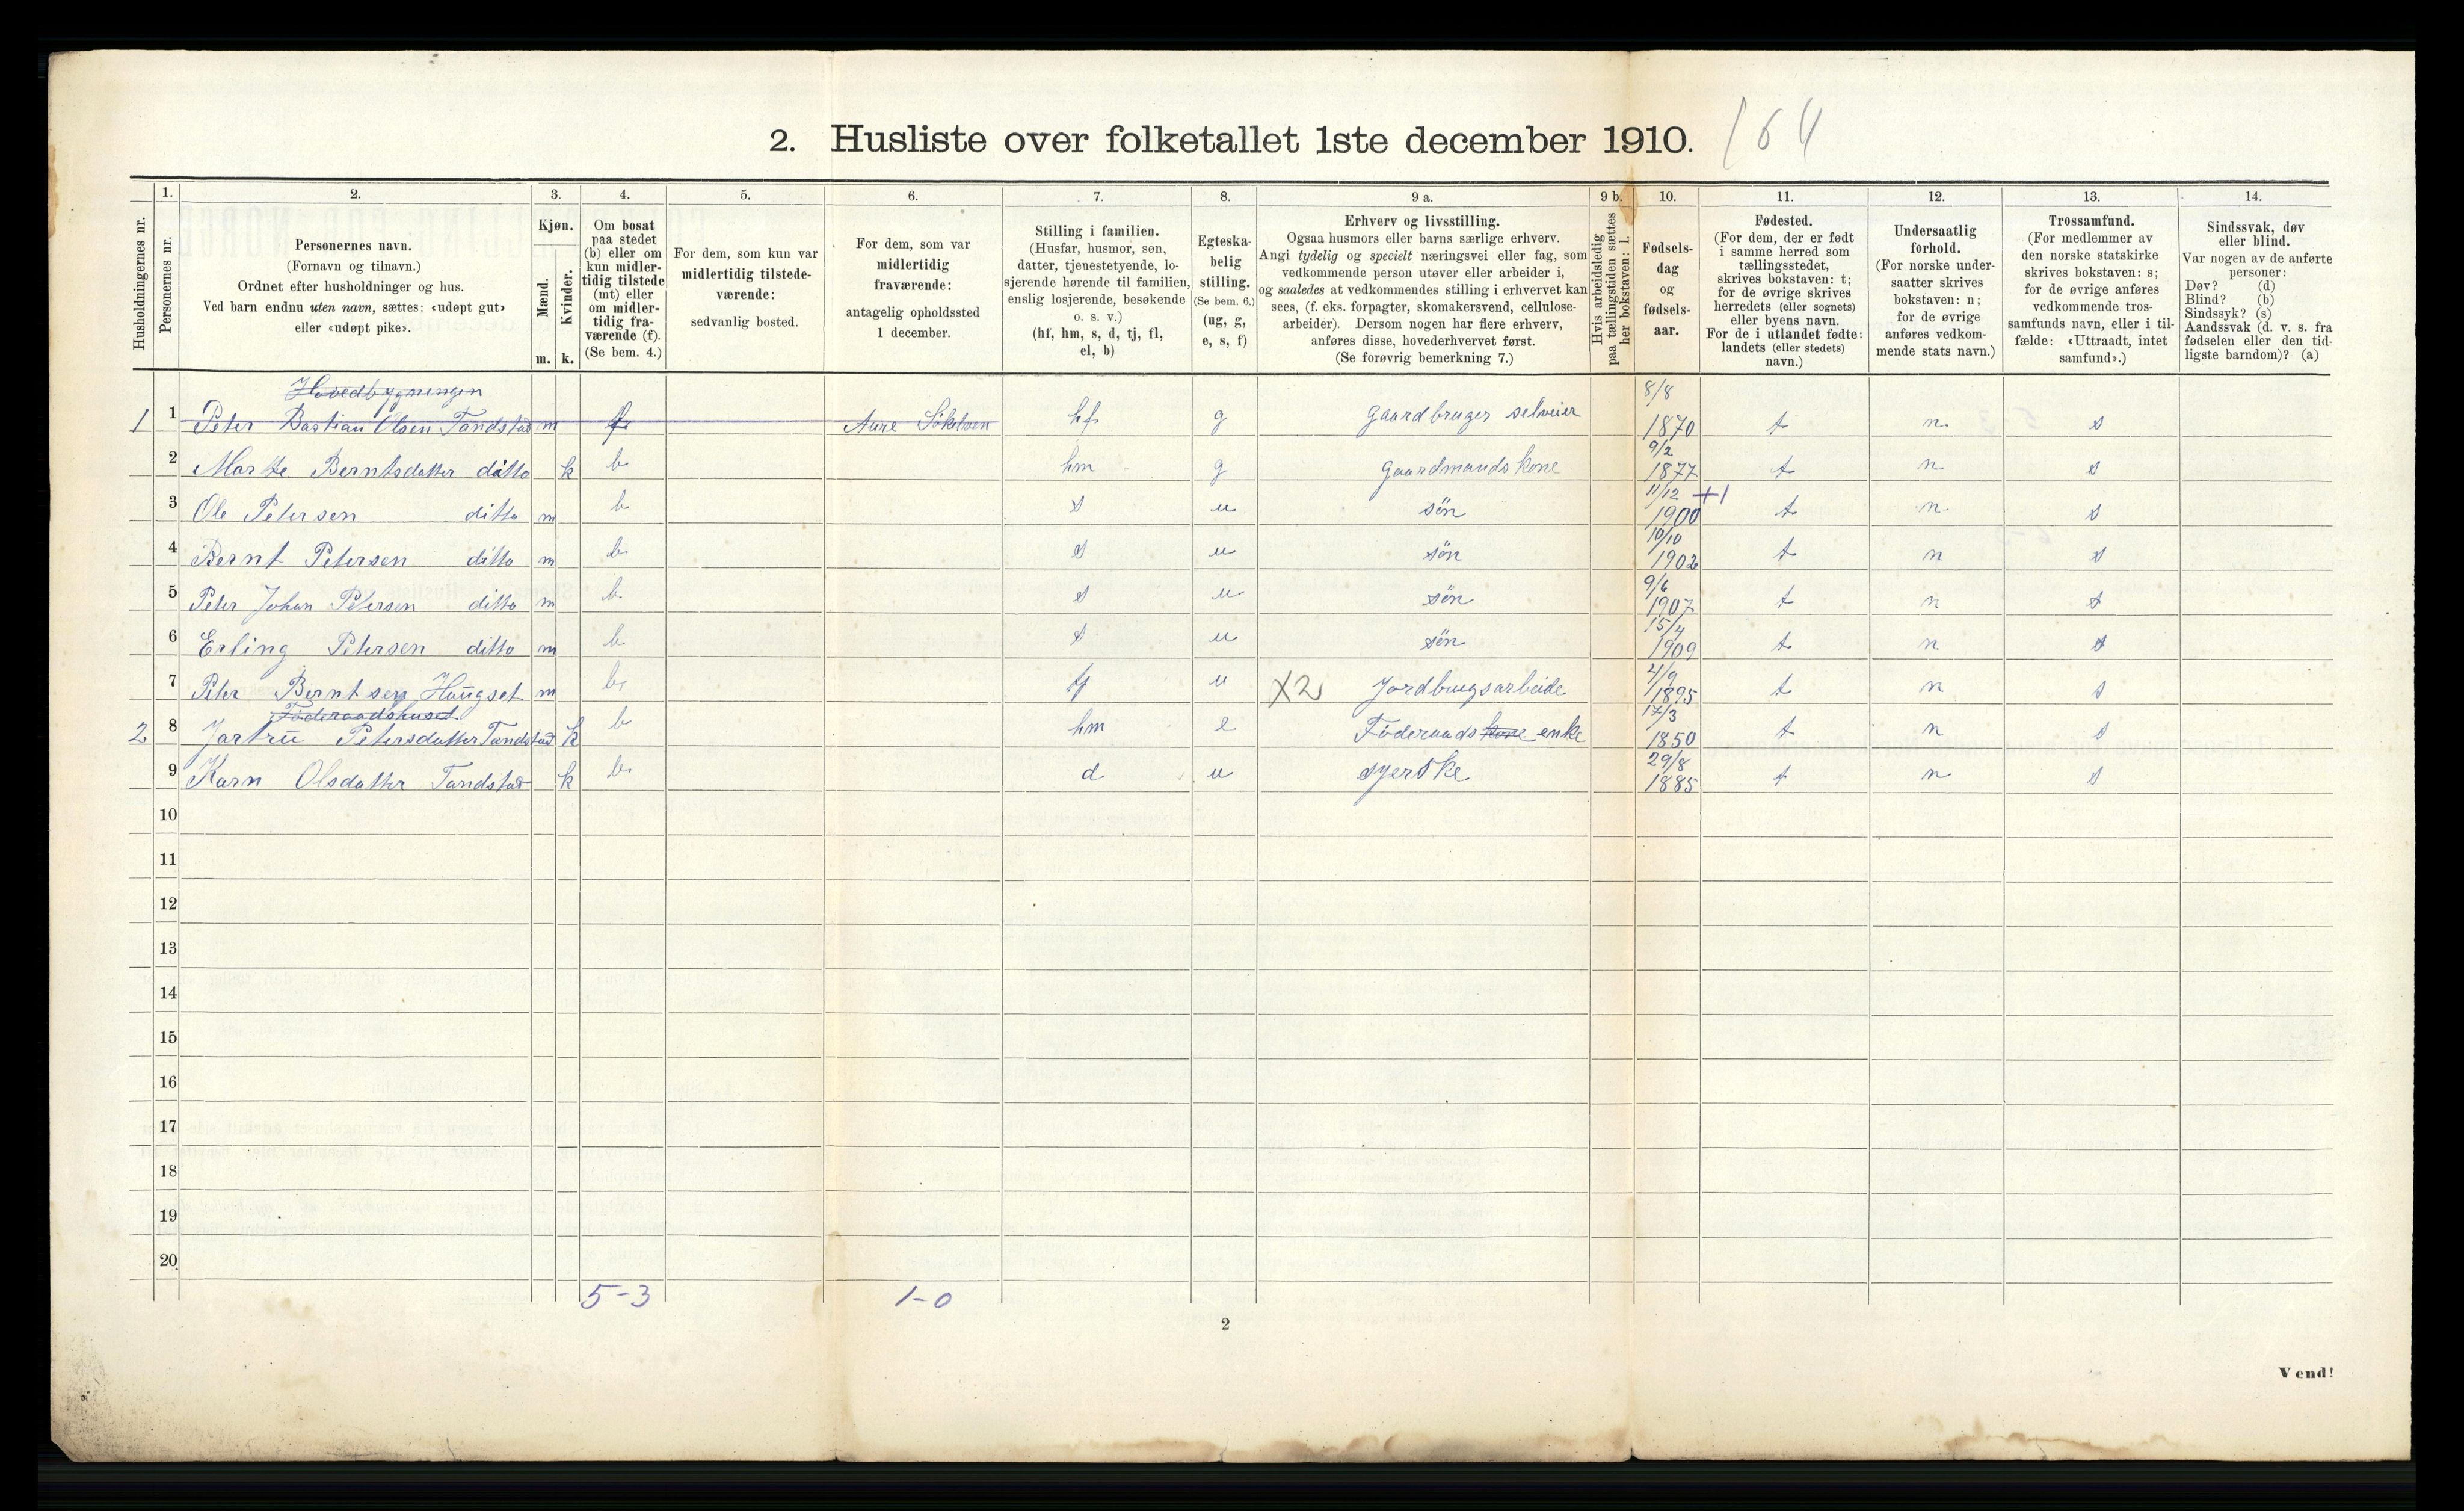 2. Husliste over folketallet 1ste december 1910. 164
Husholdningernes nr.
1.
Personernes nr.
2.
Personernes navn.
(Fornavn og tilnavn.)
Ordnet efter husholdninger og hus.
Ved barn endnu uten navn, sættes: «udøpt gut»
eller «udøpt pike».
3.
Kjøn.
Mænd.
Kvinder.
m. k.
4.
Om bosat
paa stedet
(b) eller om
kun midler-
tidig tilstede
(mt) eller
om midler-
tidig fra-
værende (f).
(Se bem. 4.)
5.
For dem, som kun var
midlertidig tilstede-
værende:
sedvanlig bosted.
6.
For dem, som var
midlertidig
fraværende:
antagelig opholdssted
1 december.
7.
Stilling i familien.
(Husfar, husmor, søn,
datter, tjenestetyende, lo-
sjerende hørende til familien,
enslig losjerende, besøkende
o. s. v.)
(hf, hm, s, d, tj, fl,
el, b)
8.
Egteska-
belig
stilling.
(Se bem. 6.)
(ug, g,
e, s, f)
9 a.
Erhverv og livsstilling.
Ogsaa husmors eller barns særlige erhverv.
Angi tydelig og specielt næringsvei eller fag, som
vedkommende person utøver eller arbeider i,
og saaledes at vedkommendes stilling i erhvervet kan
sees, (f. eks. forpagter, skomakersvend, cellulose-
arbeider). Dersom nogen har flere erhverv,
anføres disse, hovederhvervet først.
(Se forøvrig bemerkning 7.)
9 b.
Hvis arbeidsledig
paa tællingstiden sættes
her bokstaven: l.
10.
Fødsels-
dag
og
fødsels-
aar.
11.
Fødested.
(For dem, der er født
i samme herred som
tællingsstedet,
skrives bokstaven: t;
for de øvrige skrives
herredets (eller sognets)
eller byens navn.
For de i utlandet fødte:
landets (eller stedets)
navn.)
12.
Undersaatlig
forhold.
(For norske under-
saatter skrives
bokstaven: n;
for de øvrige
anføres vedkom-
mende stats navn.)
13.
Trossamfund.
(For medlemmer av
den norske statskirke
skrives bokstaven: s;
for de øvrige anføres
vedkommende tros-
samfunds navn, eller i til-
fælde: «Uttraadt, intet
samfund».)
14.
Sindssvak, døv
eller blind.
Var nogen av de anførte
personer:
Døv? (d)
Blind? (b)
Sindssyk? (s)
Aandssvak (d. v. s. fra
fødselen eller den tid-
ligste barndom)? (a)
Hovedbygningen
1 1 Peter Bastian Olsen Tandstad m f Aure Sökelven hf g gaardbruger selveier 8/8 1870 t n s
2 Marte Berntsdatter ditto k b hm g gaardmands kone 9/2 1877 t n s
3 Ole Petersen ditto m b s u søn 11/12 +1 1900 t n s
4 Bernt Petersen ditto m b s u søn 10/10 1902 t n s
5 Peter Johan Petersen ditto m b s u søn 9/6 1907 t n s
6 Erling Petersen ditto m b s u søn 15/4 1909 t n s
7 Peter Berntsen Haugset m b tj u X2 Jordbrugsarbeide 4/9 1895 t n s
Föderaadshuset
2 8 Jartru Petersdatter Tandstad k b hm e Föderaads kone enke 17/3 1850 t n s
9 Karn Olsdatter Tandstad k b d u syerske 29/8 1885 t n s
10
11
12
13
14
15
16
17
18
19
20
5-3 1-0
2
Vend!